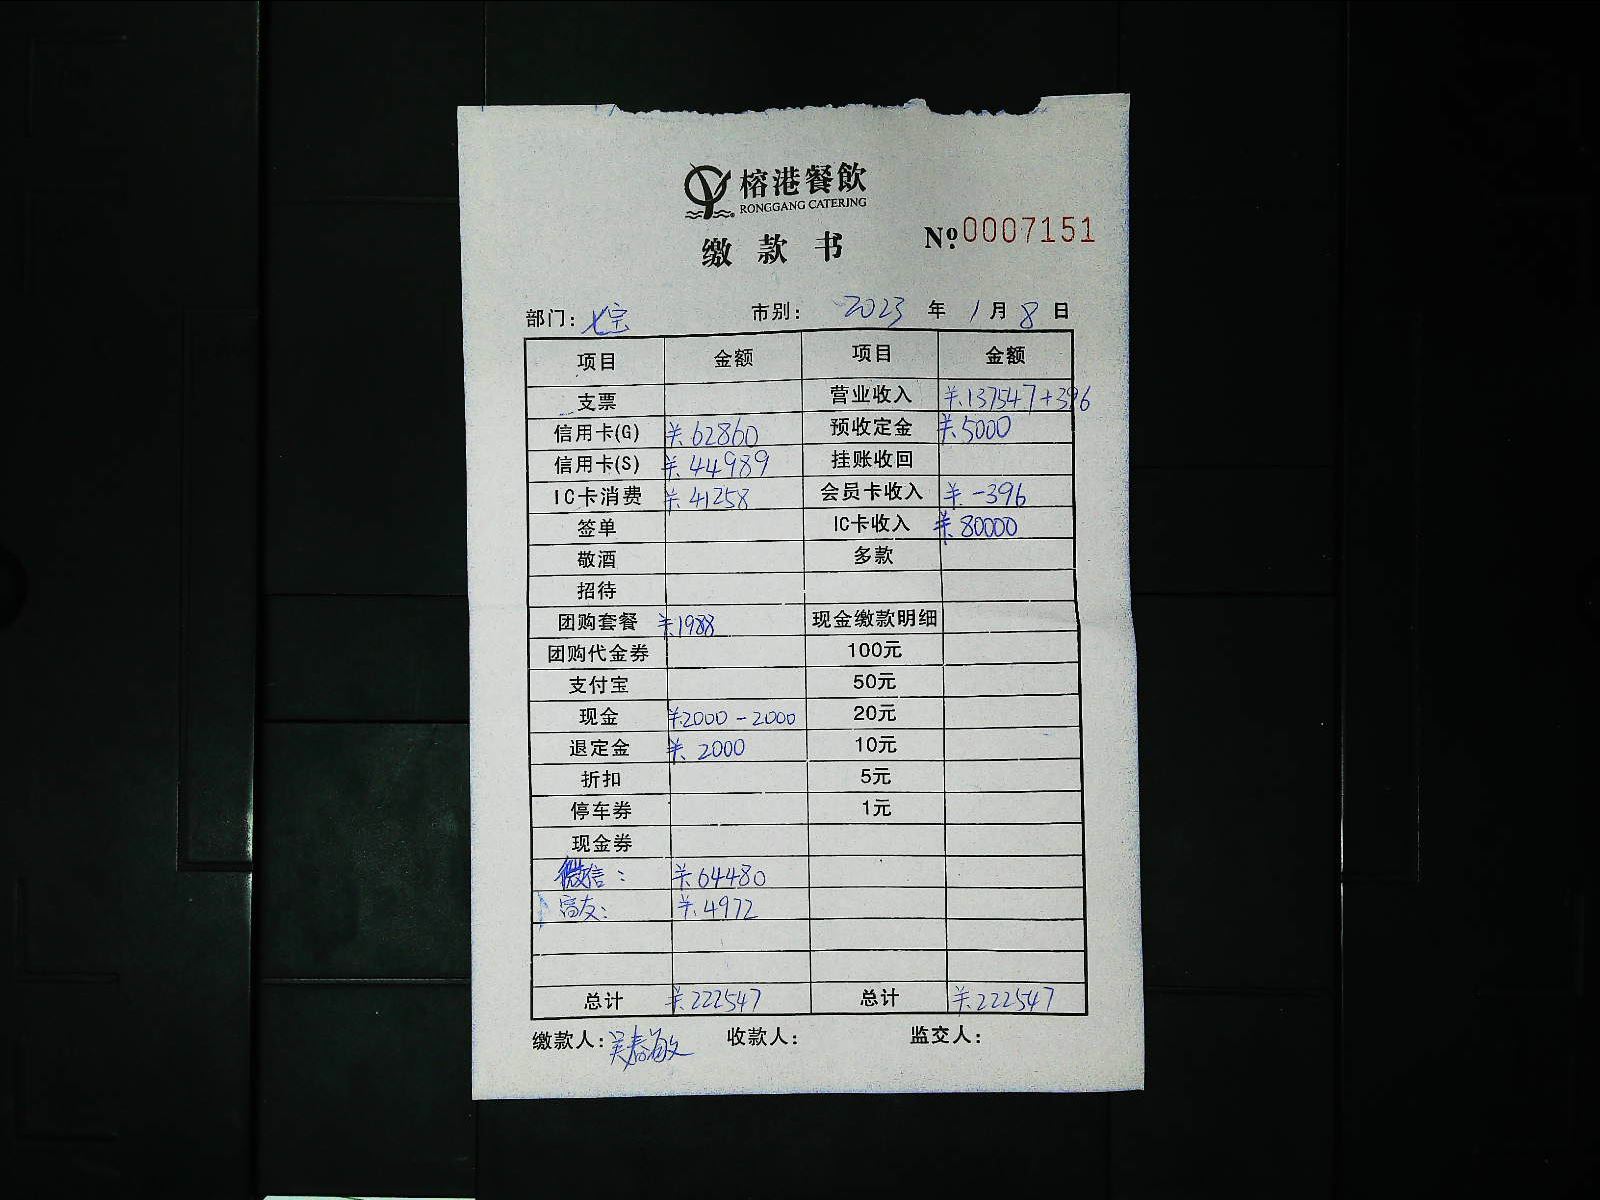 榕港餐飲
RONGGANG CATERING
缴款书 №0007151
部门：七宝 市别： 2023年1月8日
项目 金额 项目 金额
支票 营业收入 ¥.137547+396
信用卡(G) ¥.62860 预收定金 ¥.5000
信用卡(S) ¥.44989 挂账收回
IC卡消费 ¥.41258 会员卡收入 ¥-396
签单 IC卡收入 ¥.80000
敬酒 多款
招待
团购套餐 ¥.1988 现金缴款明细
团购代金券 100元
支付宝 50元
现金 ¥2000-2000 20元
退定金 ¥.2000 10元
折扣 5元
停车券 1元
现金券
微信： ¥.64480
富友： ¥.4972
总计 ¥.222547 总计 ¥.222547
缴款人：吴春敏 收款人： 监交人：